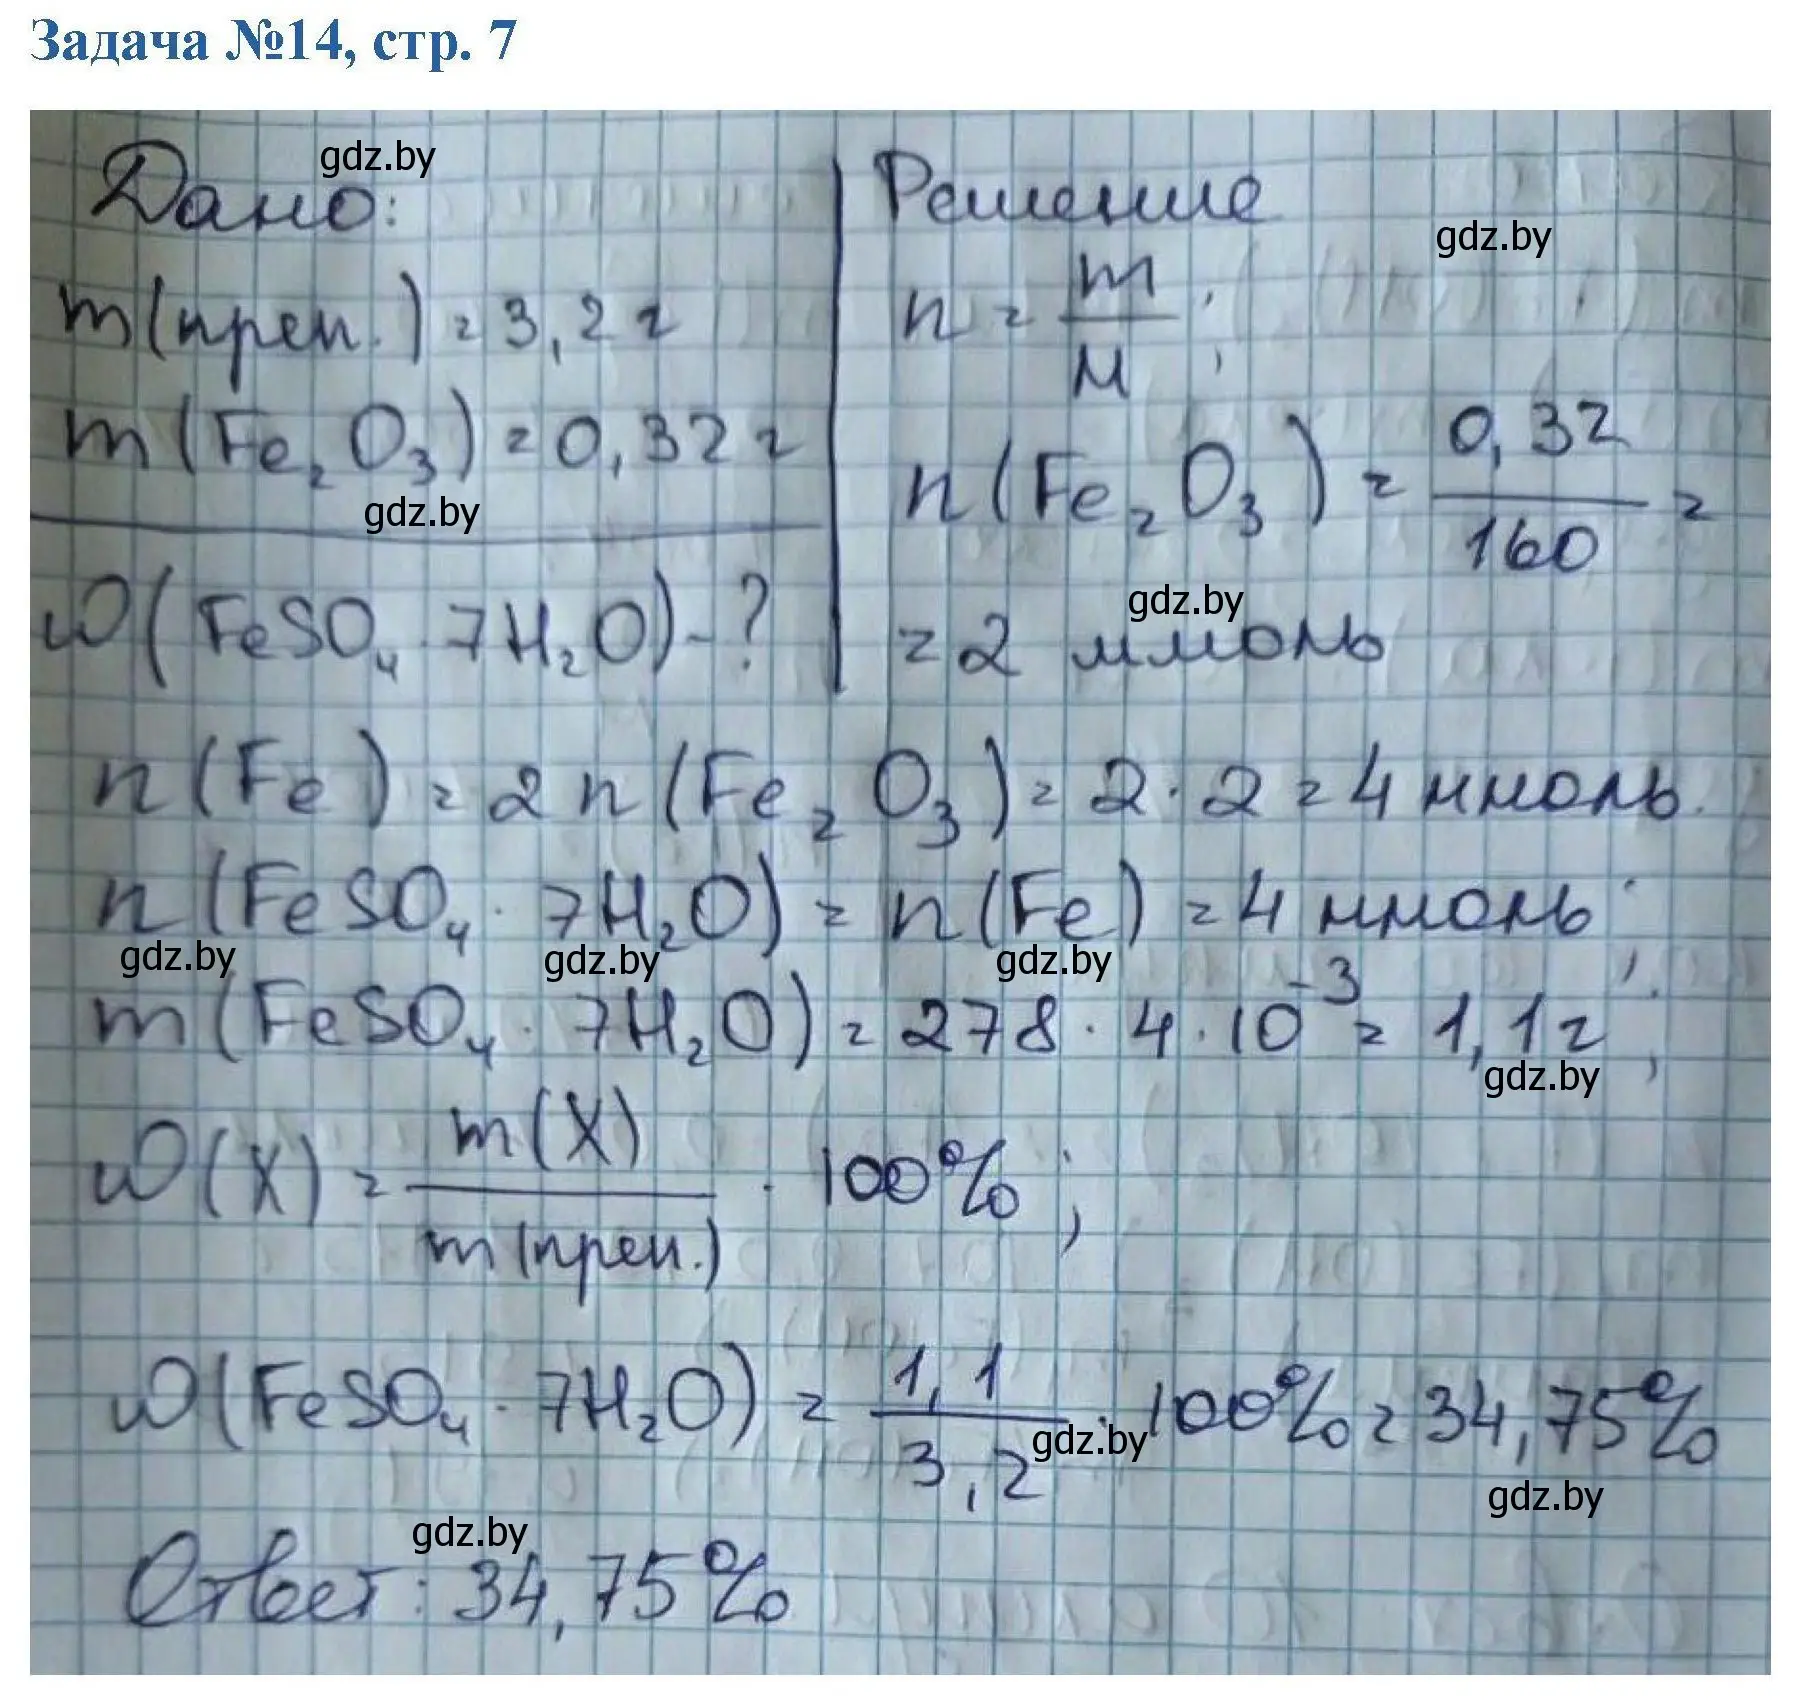 Задача №14, стр. 7
gdz.by
Дано:
Решение
gdz.by
m(преп.) = 3,2 г
n = m/M;
m(Fe₂O₃) = 0,32 г
n(Fe₂O₃) = 0,32/160 =
gdz.by
ω(FeSO₄ · 7H₂O) - ?
gdz.by
= 2 ммоль
n(Fe) = 2n(Fe₂O₃) = 2 · 2 = 4 ммоль.
n(FeSO₄ · 7H₂O) = n(Fe) = 4 ммоль;
gdz.by gdz.by gdz.by
m(FeSO₄ · 7H₂O) = 278 · 4 · 10⁻³ = 1,1 г;
gdz.by
ω(X) = m(X)/m(преп.) · 100%;
ω(FeSO₄ · 7H₂O) = 1,1/3,2 · 100% = 34,75%
gdz.by
gdz.by
gdz.by
Ответ: 34,75%